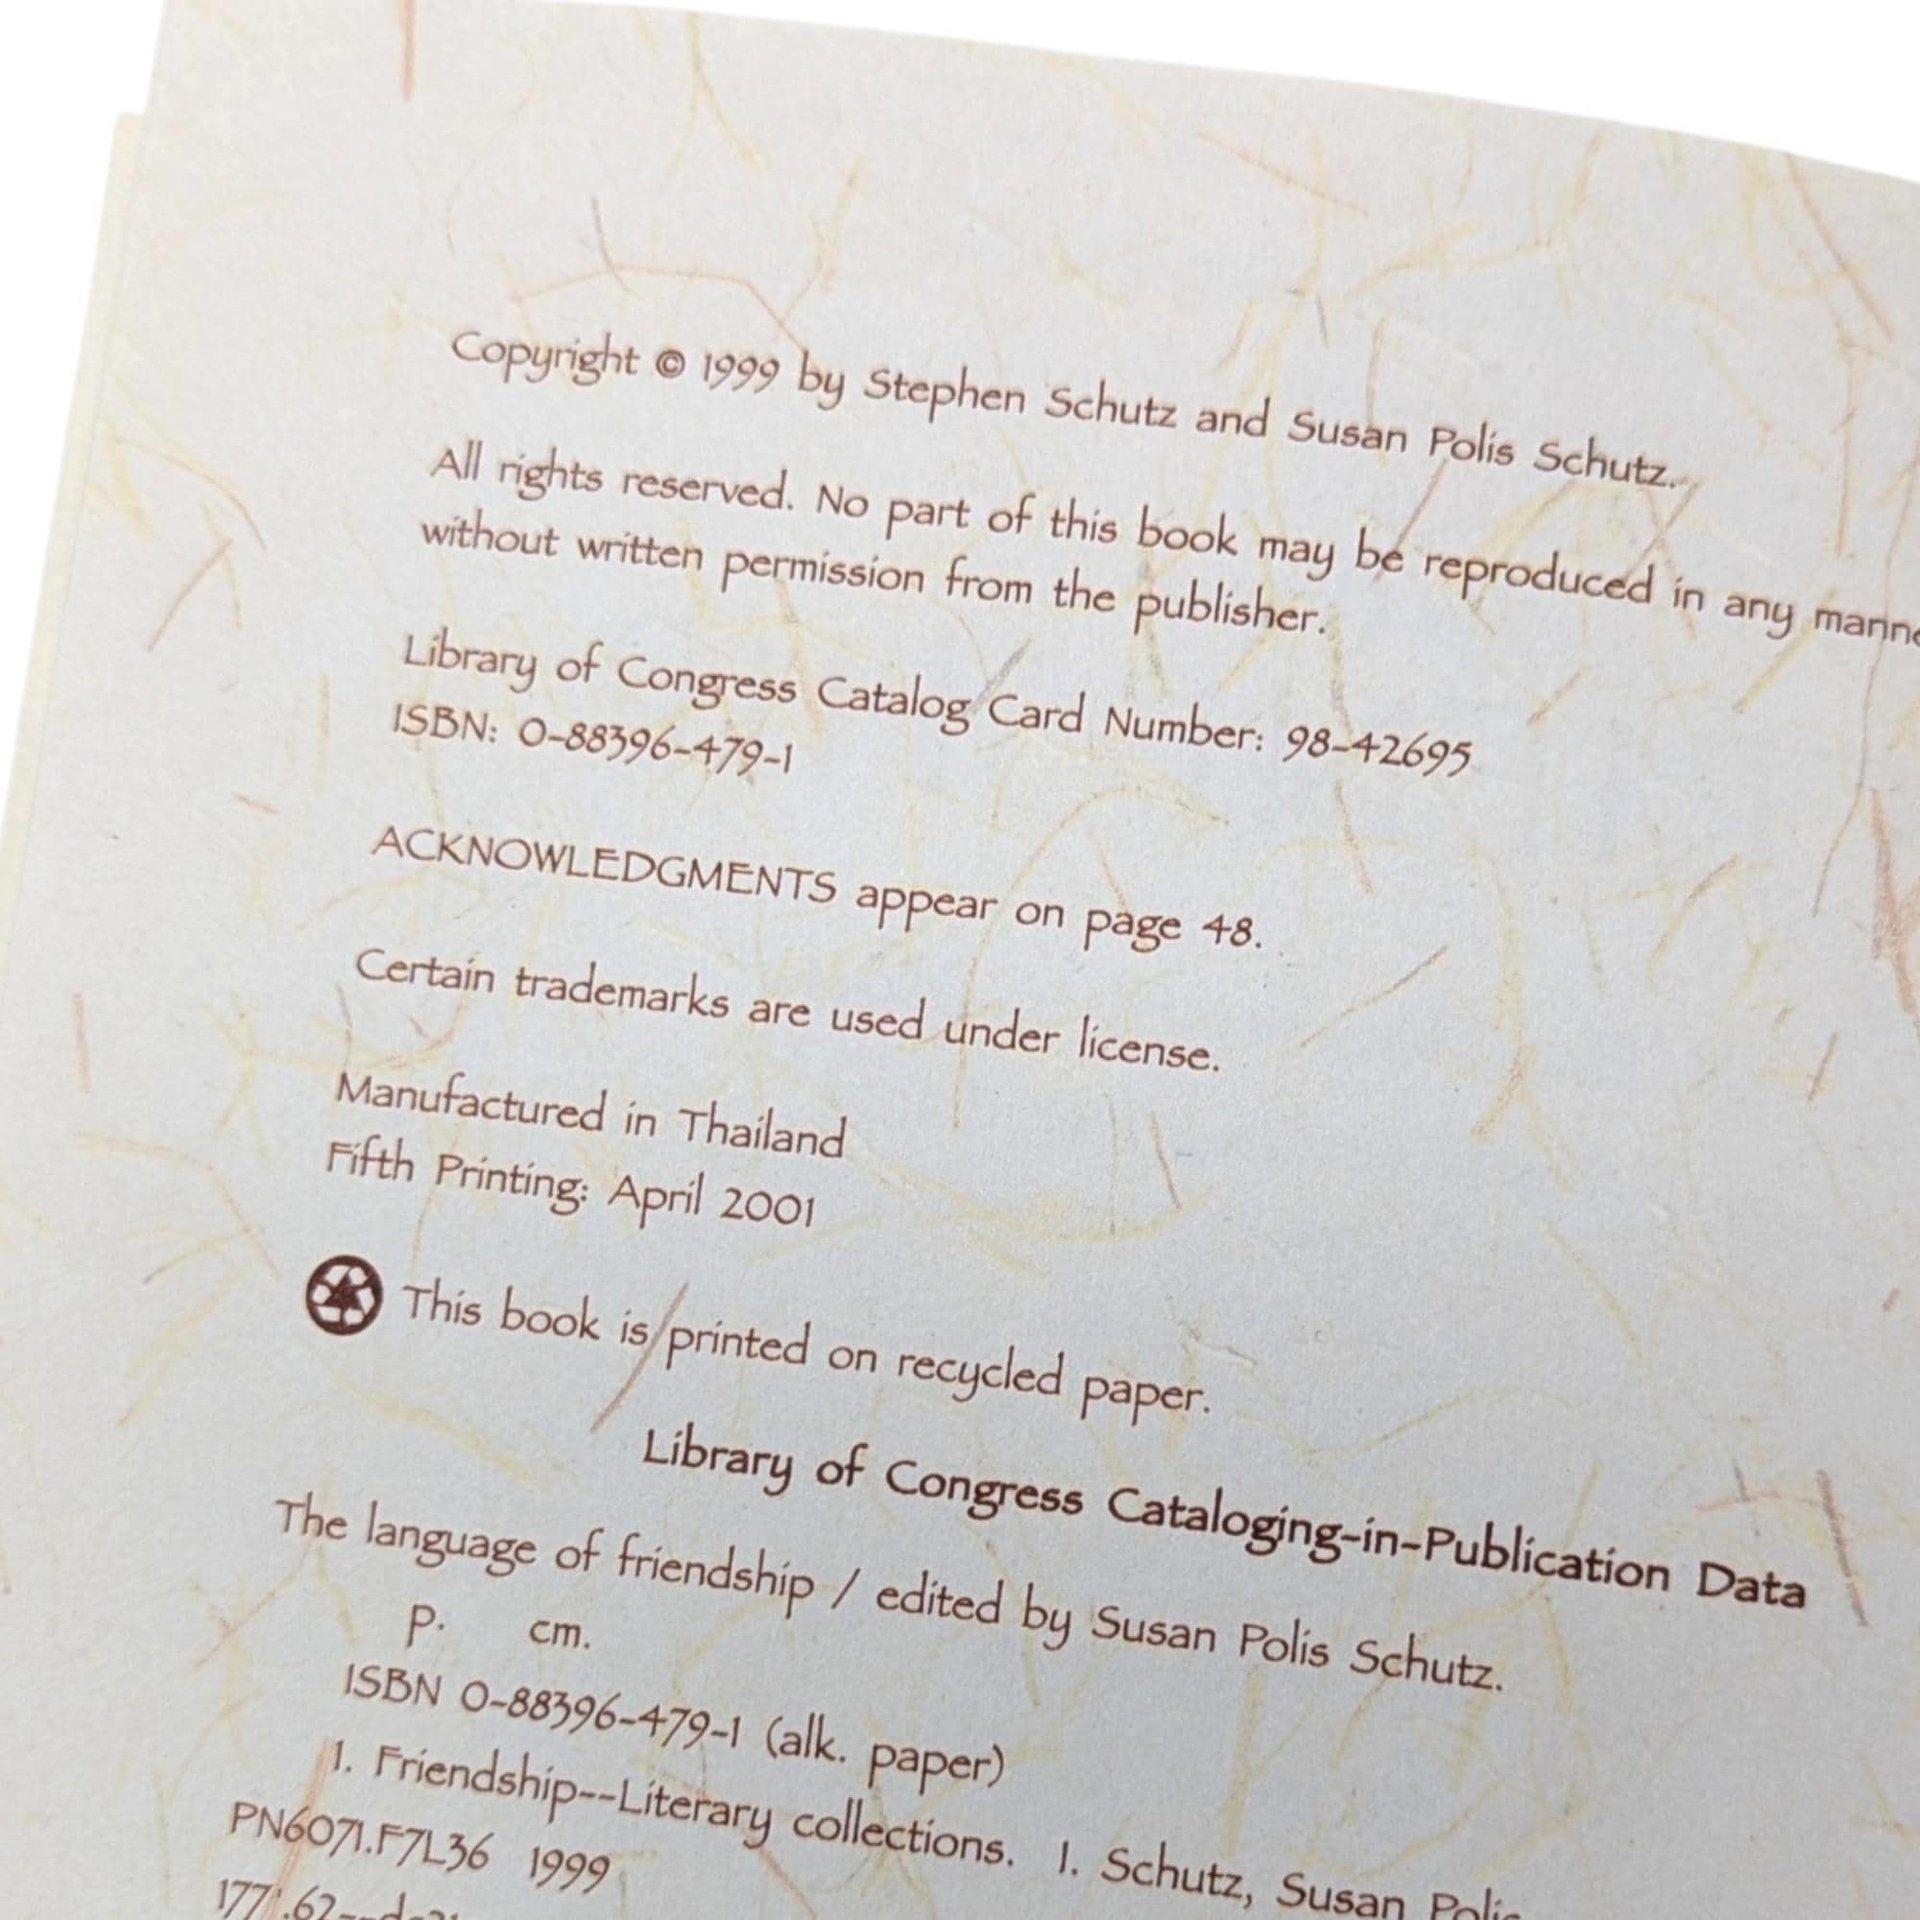 Copyright © 1999 by Stephen Schutz and Susan Polis Schutz.
All rights reserved. No part of this book may be reproduced in any
without written permission from the publisher.
Library of Congress Catalog Card Number: 98-42695
ISBN: 0-88396-479-1
ACKNOWLEDGMENTS appear on page 48.
Certain trademarks are used under license.
Manufactured in Thailand
Fifth Printing: April 2001
This book is printed on recycled paper.
Library of Congress Cataloging-in-Publication Data
The language of friendship / edited by Susan Polis Schutz.
p. cm.
ISBN 0-88396-479-1 (alk. paper)
1. Friendship--Literary collections. I. Schutz, Susan Polis
PN6071.F7L36 1999